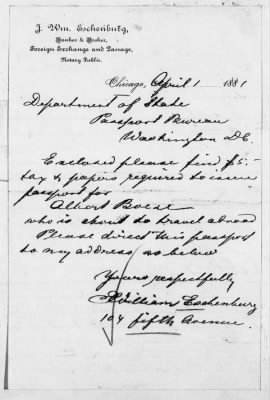 J. Wm. Eschenburg,
Banker & Broker,
Foreign Exchange and Passage,
Notary Public.
Chicago, April 1 1881
Department of State
Passport Bureau
Washington D.C.
Enclosed please find $5.-
tax & papers required to issue
passport for
Albert Boese
who is about to travel abroad
Please direct this passport
to my address as below
Yours respectfully
J William Eschenburg
104 fifth Avenue.